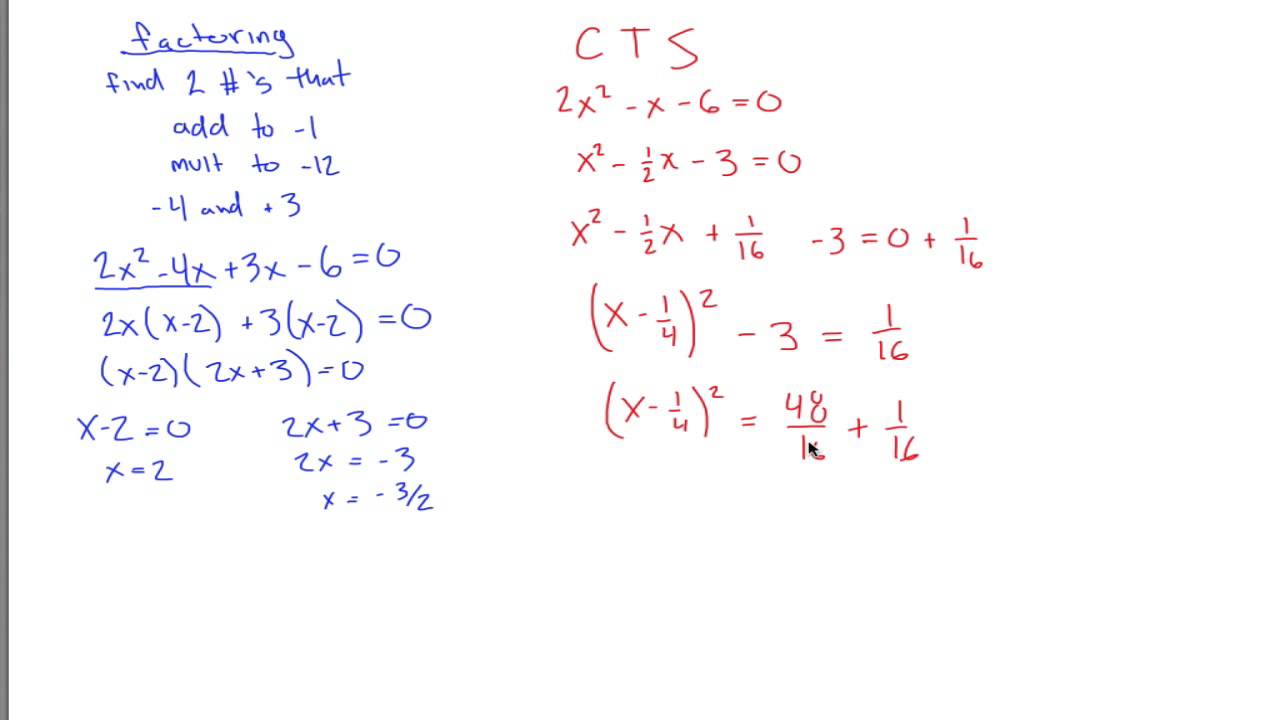 factoring
find 2 #'s that
add to -1
mult to -12
-4 and +3
2x² -4x +3x - 6 = 0
2x(x-2) +3(x-2) = 0
(x-2)(2x+3) = 0
x-2 = 0
x = 2
2x+3 = 0
2x = -3
x = -3/2
CTS
2x² - x - 6 = 0
x² - 1/2x - 3 = 0
x² - 1/2x + 1/16 -3 = 0 + 1/16
(x - 1/4)² - 3 = 1/16
(x - 1/4)² = 48/16 + 1/16